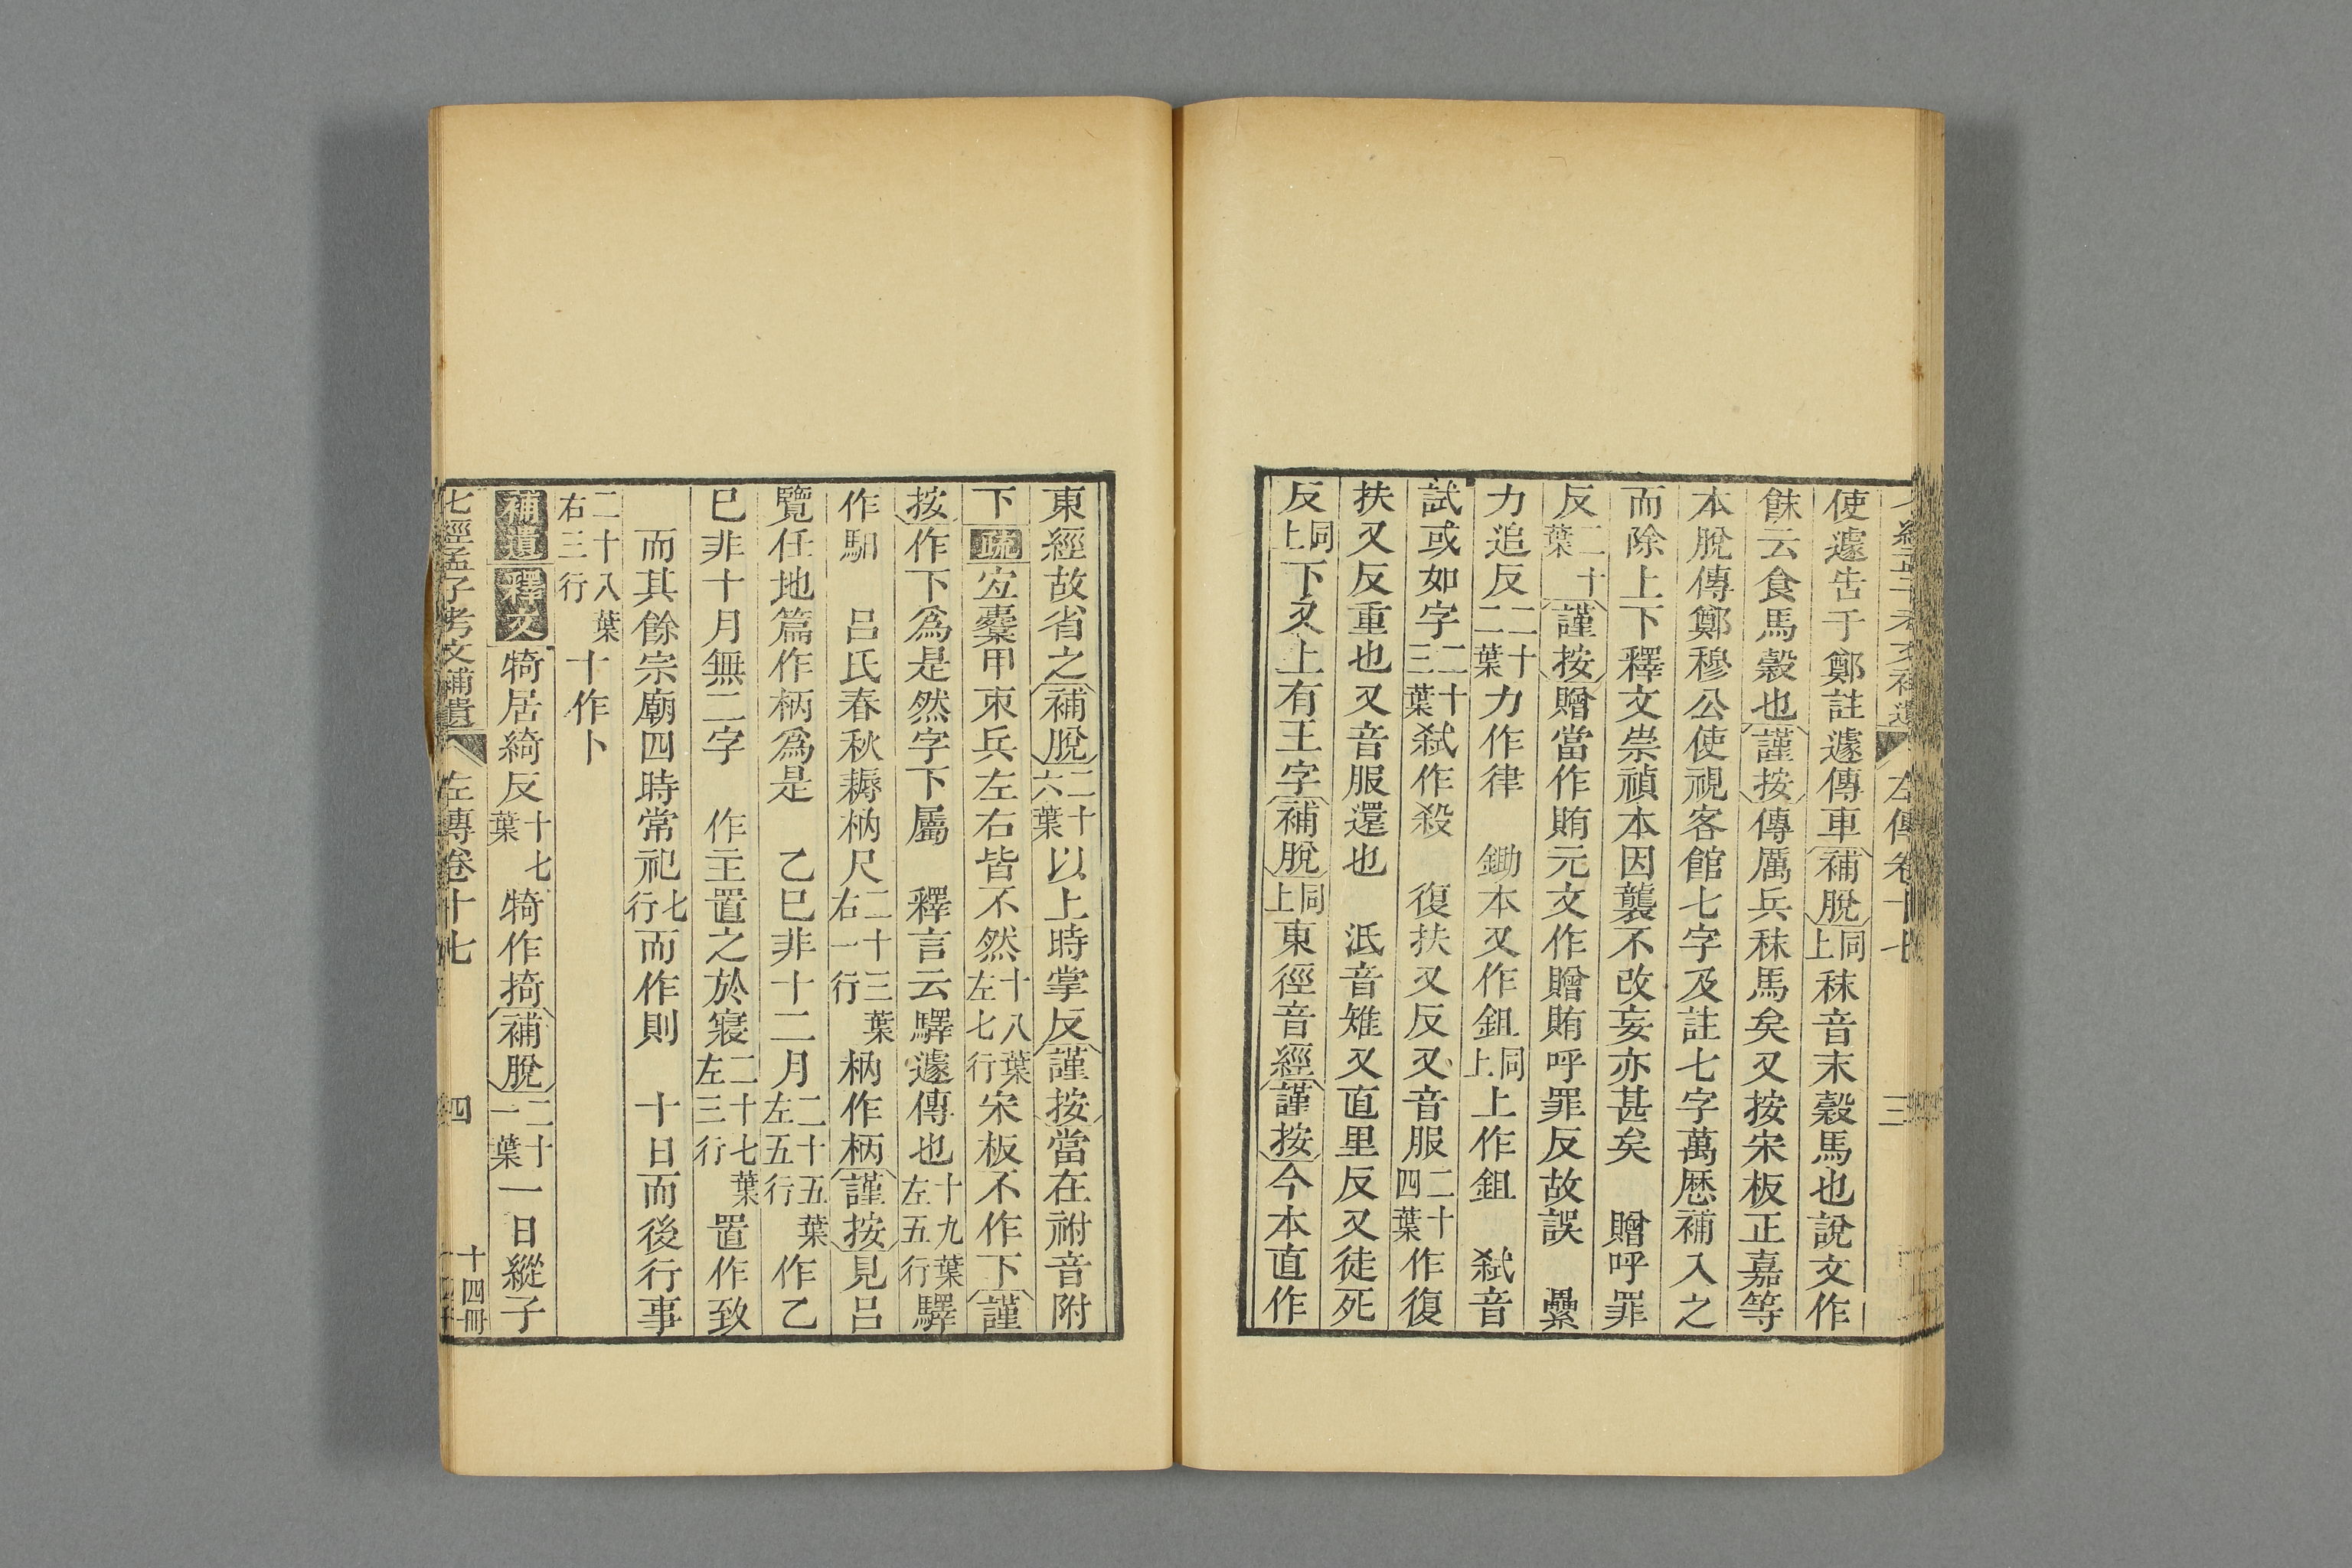 七經孟子考文補遺 左傳卷十七 三
使遽告于鄭註遽傳車補脫同上秣音末穀馬也說文作
餗云食馬穀也謹按傳厲兵秣馬矣又按宋板正嘉等
本脫傳鄭穆公使視客館七字及註七字萬歷補入之
而除上下釋文崇禎本因襲不改妄亦甚矣 贈呼罪
反二十葉謹按贈當作賄元文作贈賄呼罪反故誤 纍
力追反二十二葉力作律 鋤本又作鉏同上上作鉏 弒音
試或如字二十三葉弒作殺 復扶又反又音服二十四葉作復
扶又反重也又音服還也 泜音雉又直里反又徒死
反同上下又上有王字補脫同上東徑音經謹按今本直作
東經故省之補脫二十六葉以上時掌反謹按當在祔音附
下疏宐櫜甲束兵左右皆不然十八葉左七行宋板不作下謹
按作下為是然字下屬 釋言云驛遽傳也十九葉左五行驛
作馹 呂氏春秋耨柄尺二十三葉右一行柄作柄謹按見呂
覽任地篇作柄為是 乙巳非十二月二十五葉左五行作乙
巳非十月無二字 作主置之於寢二十七葉左三行置作致
而其餘宗廟四時常祀七行而作則 十日而後行事
二十八葉右三行十作卜
補遺釋文犄居綺反十七葉犄作掎補脫二十一葉一日縱子
七經孟子考文補遺 左傳卷十七 四 十四冊